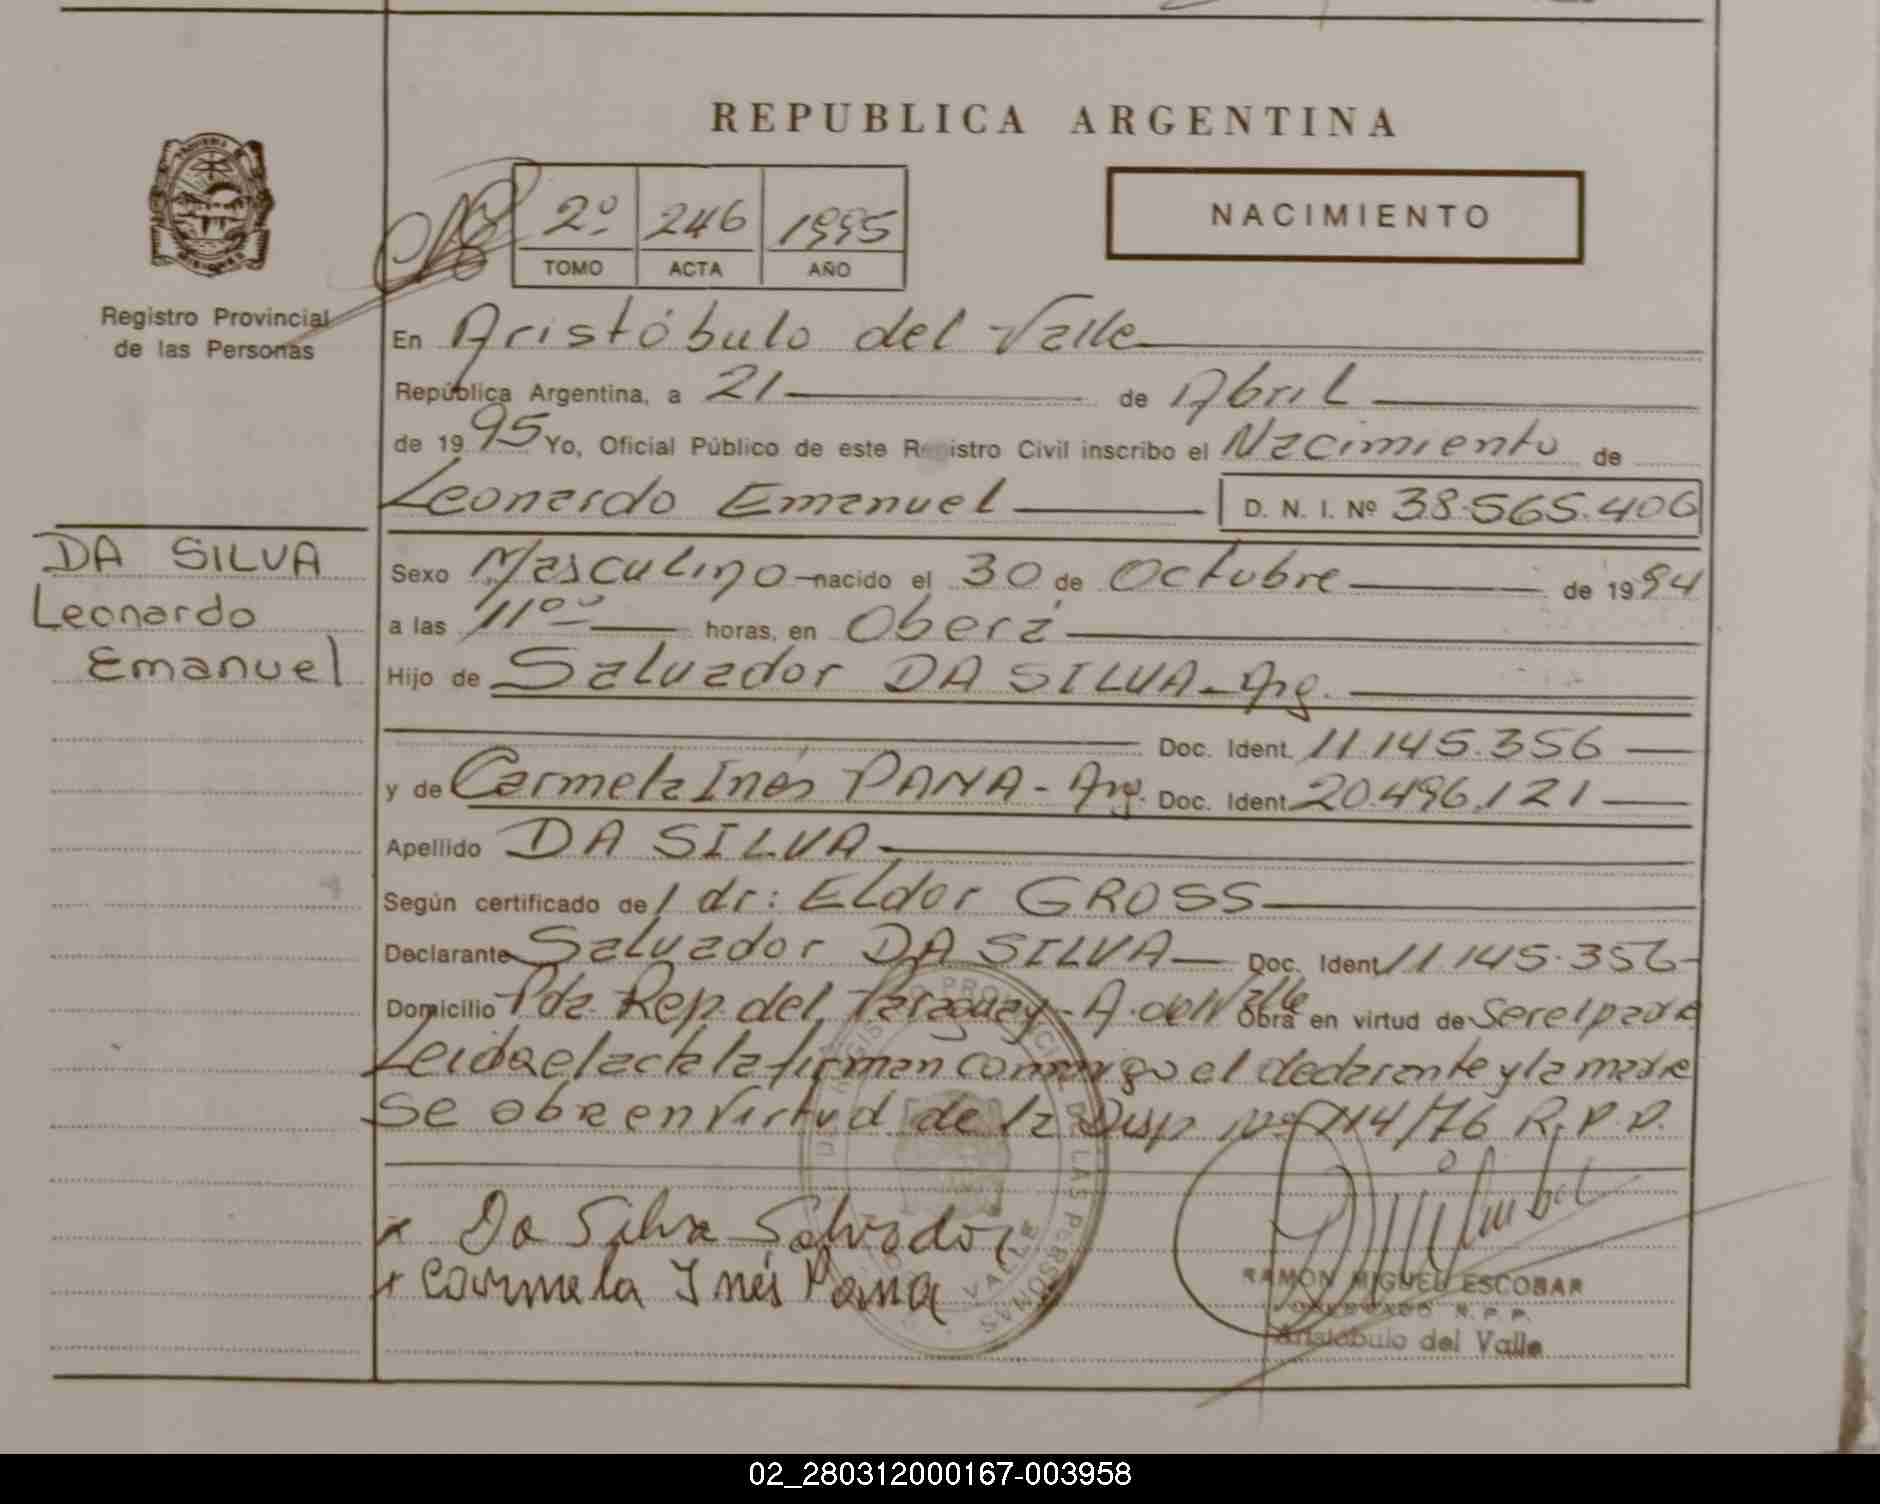 REPUBLICA ARGENTINA
2º 246 1995
TOMO ACTA AÑO
NACIMIENTO
Registro Provincial
de las Personas
En Aristóbulo del Valle
República Argentina, a 21 de Abril
de 1995 Yo, Oficial Público de este Registro Civil inscribo el Nacimiento de
Leonardo Emanuel D. N. I. Nº 38.565.406
DA SILVA
Leonardo
Emanuel
Sexo Masculino nacido el 30 de Octubre de 1994
a las 11ºº horas, en Oberá
Hijo de Salvador DA SILVA - Arg.
Doc. Ident. 11.145.356
y de Carmela Inés PANA - Arg. Doc. Ident. 20.496.121
Apellido DA SILVA
Según certificado de / dr: Eldor GROSS
Declarante Salvador DA SILVA Doc. Ident. 11.145.356
Domicilio Pda. Rep. del Paraguay - A. del Valle Obra en virtud de Ser el padre
Leida el acta la firman conmigo el declarante y la madre
Se obra en virtud de la Disp Nº 114/76 R.P.P.
x Da Silva Salvador
x Carmela Inés Pana
REGISTRO PROVINCIAL DE LAS PERSONAS
VALLE
RAMON MIGUEL ESCOBAR
R. P. P.
Aristóbulo del Valle
02_280312000167-003958